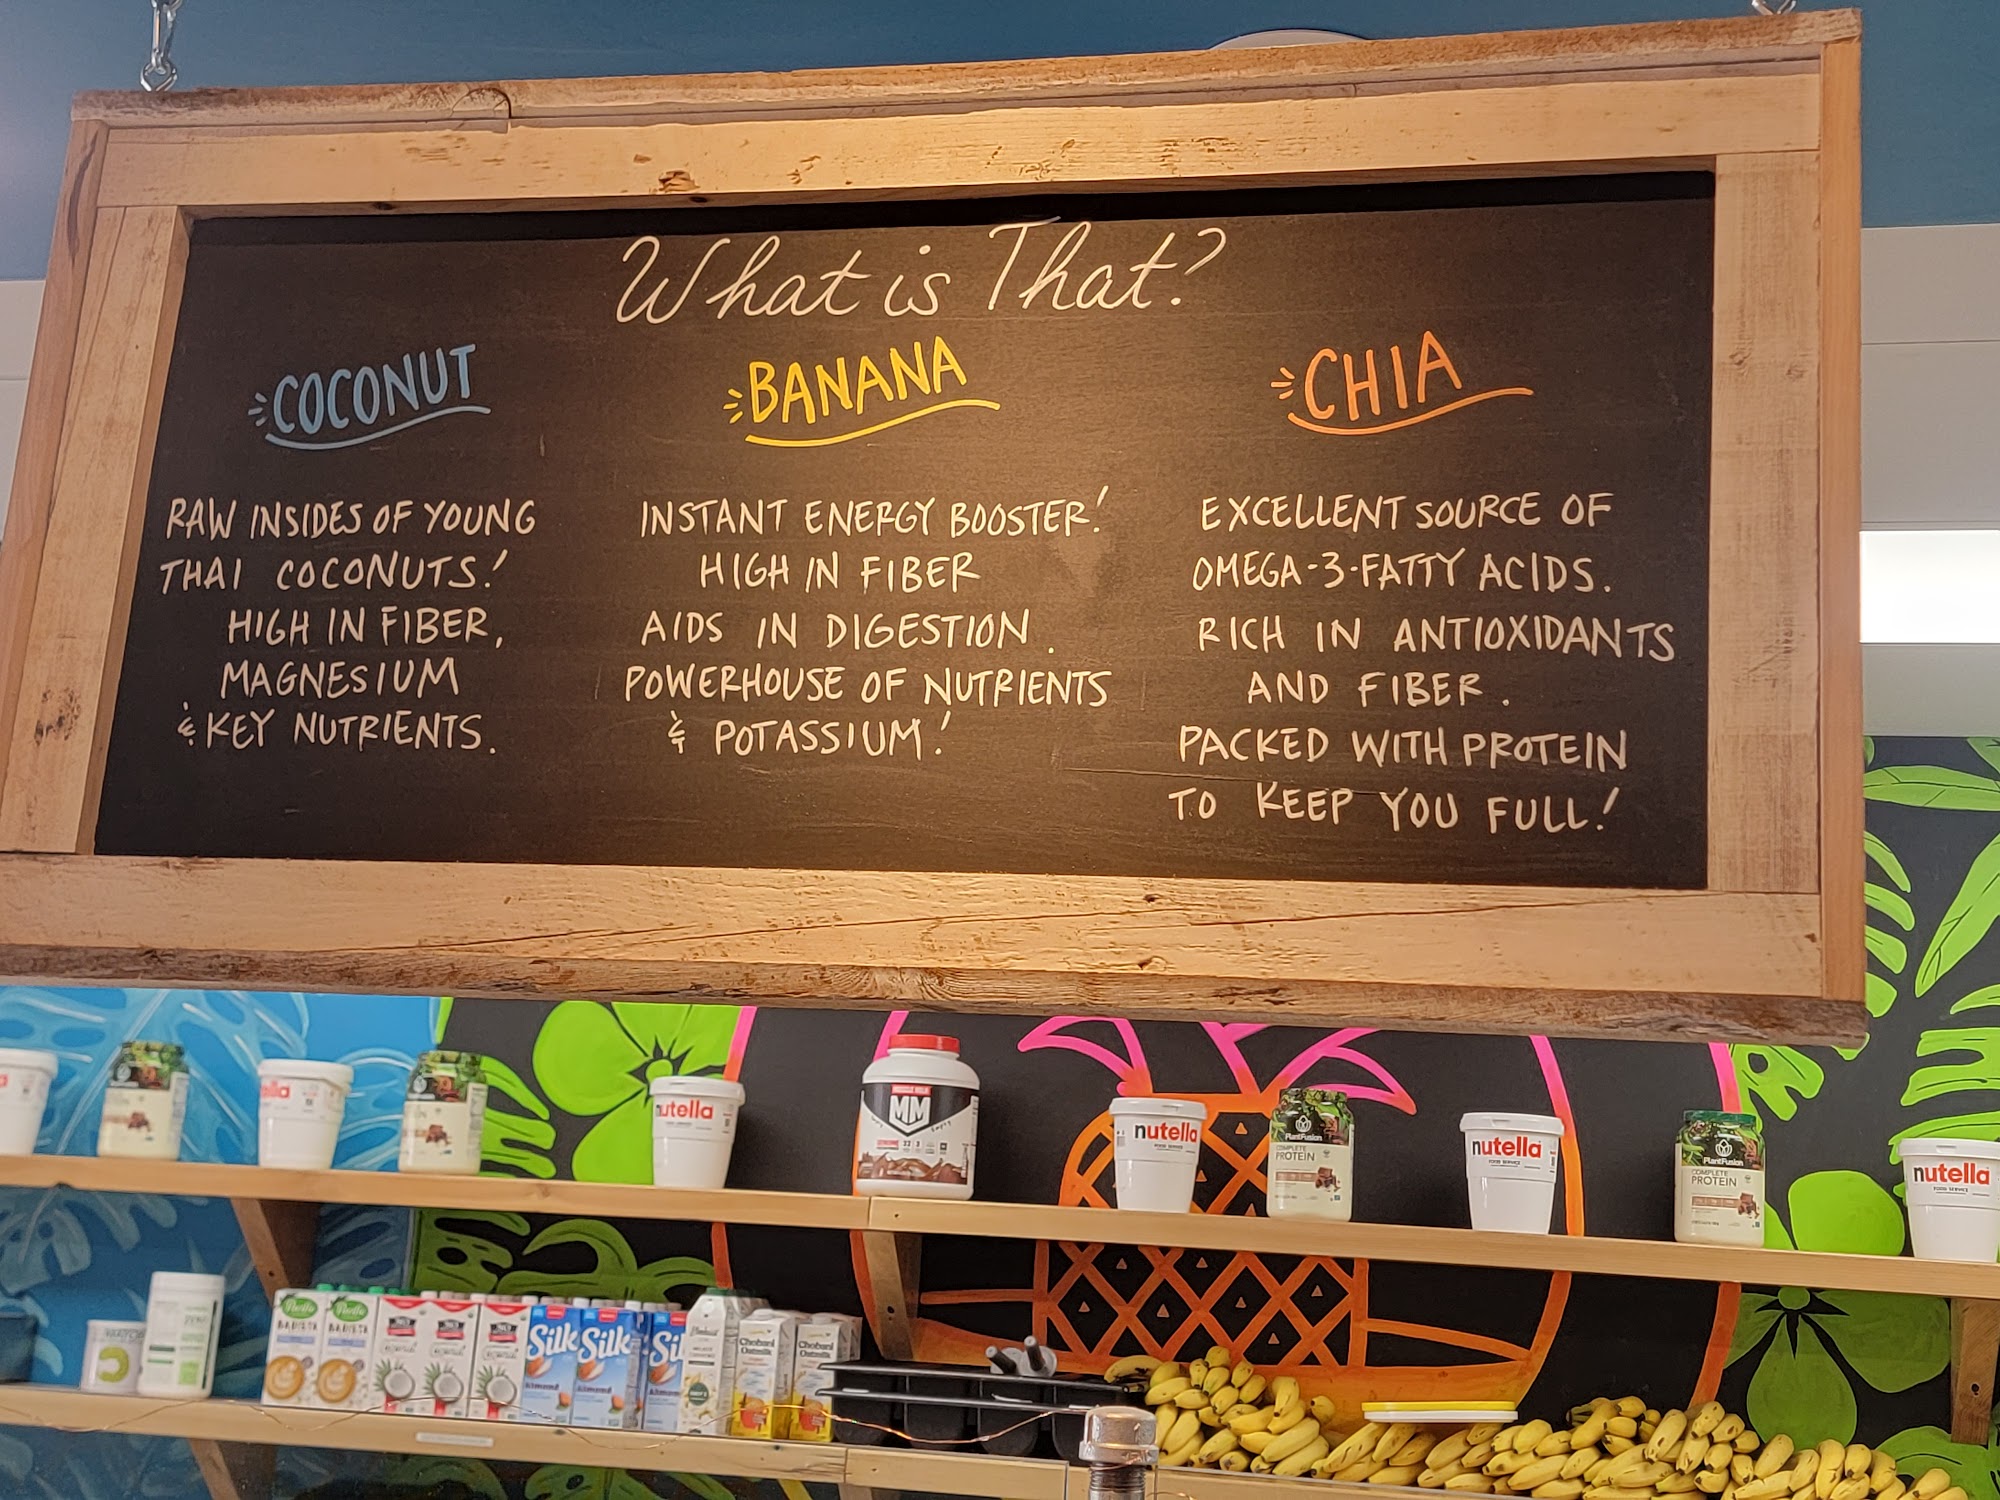 What is That?
COCONUT
RAW INSIDES OF YOUNG
THAI COCONUTS!
HIGH IN FIBER,
MAGNESIUM
& KEY NUTRIENTS.
BANANA
INSTANT ENERGY BOOSTER!
HIGH IN FIBER
AIDS IN DIGESTION.
POWERHOUSE OF NUTRIENTS
& POTASSIUM!
CHIA
EXCELLENT SOURCE OF
OMEGA-3-FATTY ACIDS.
RICH IN ANTIOXIDANTS
AND FIBER.
PACKED WITH PROTEIN
TO KEEP YOU FULL!
nutella
MUSCLE MILK
MM
nutella
FOOD SERVICE
PlantFusion
COMPLETE
PROTEIN
nutella
FOOD SERVICE
PlantFusion
COMPLETE
PROTEIN
nutella
FOOD SERVICE
BARISTA
BARISTA
Silk
Almond
Silk
Almond
Chobani
Oatmilk
Chobani
Oatmilk